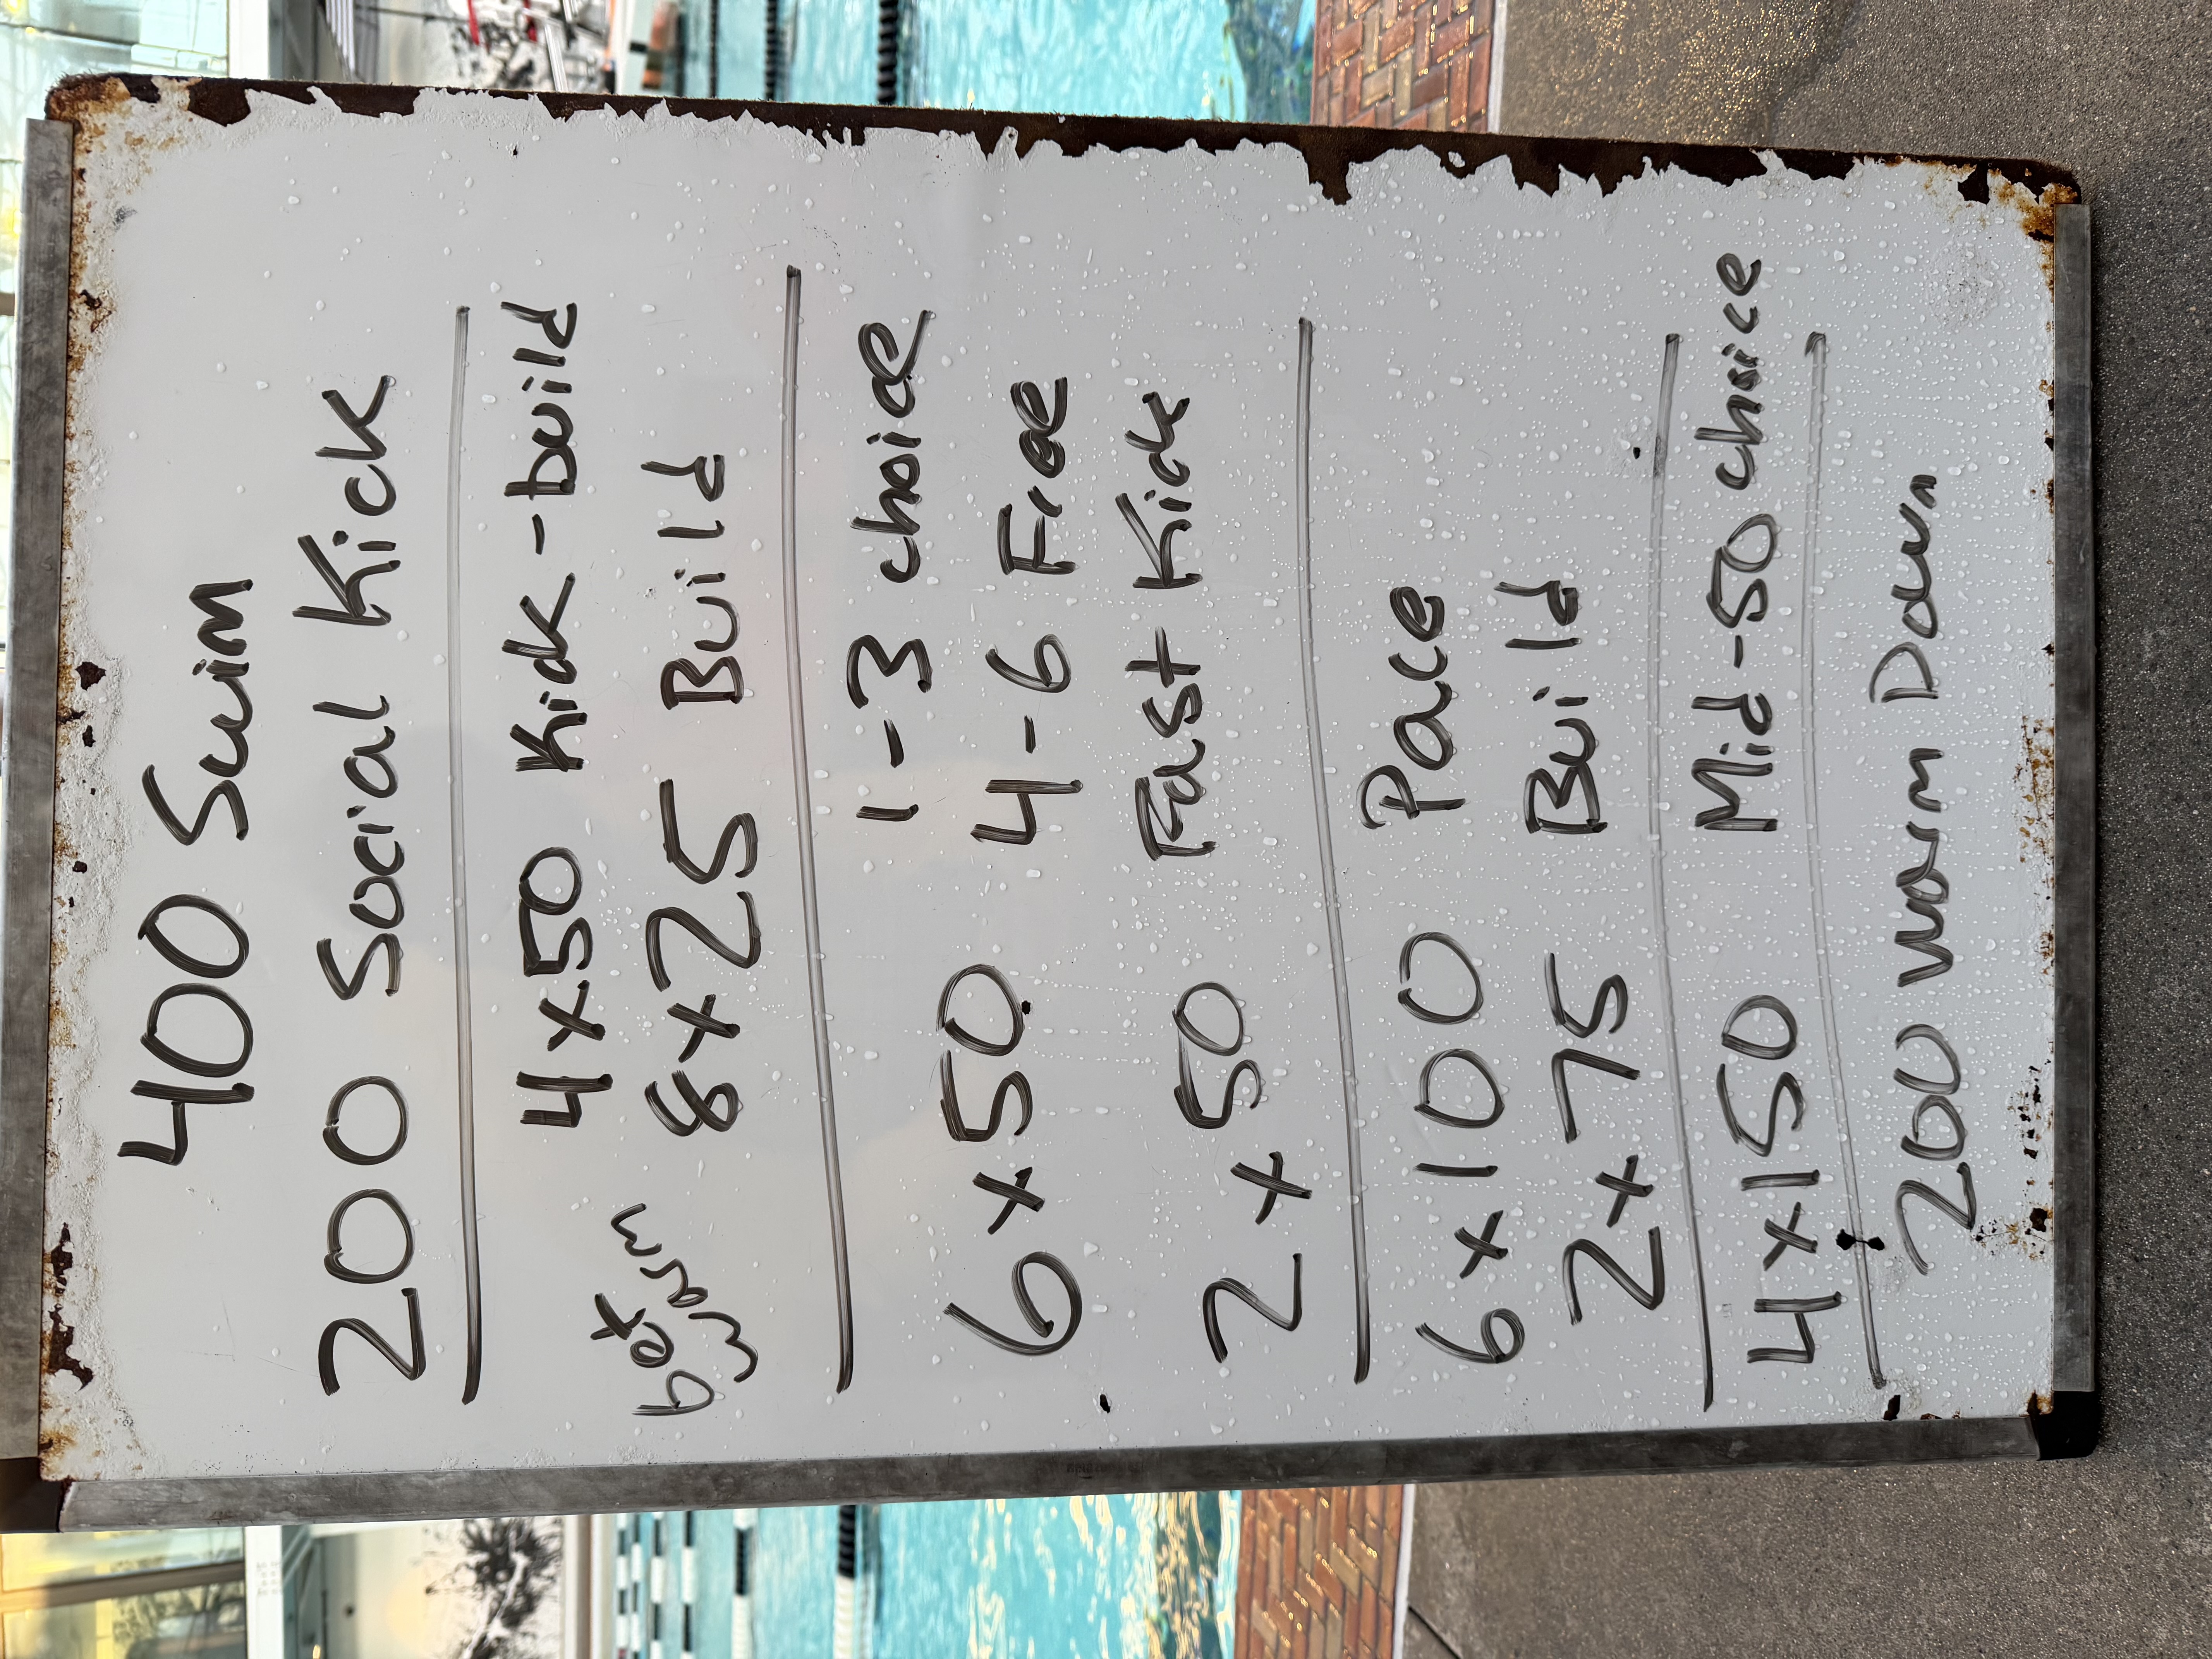 400 Swim
200 Social Kick
4x50 Kick-build
get warm
8x25 Build
6x50 1-3 choice
4-6 Free
2x50 Fast Kick
6x100 Pace
2x75 Build
4x150 Mid-50 choice
200 Warm Down